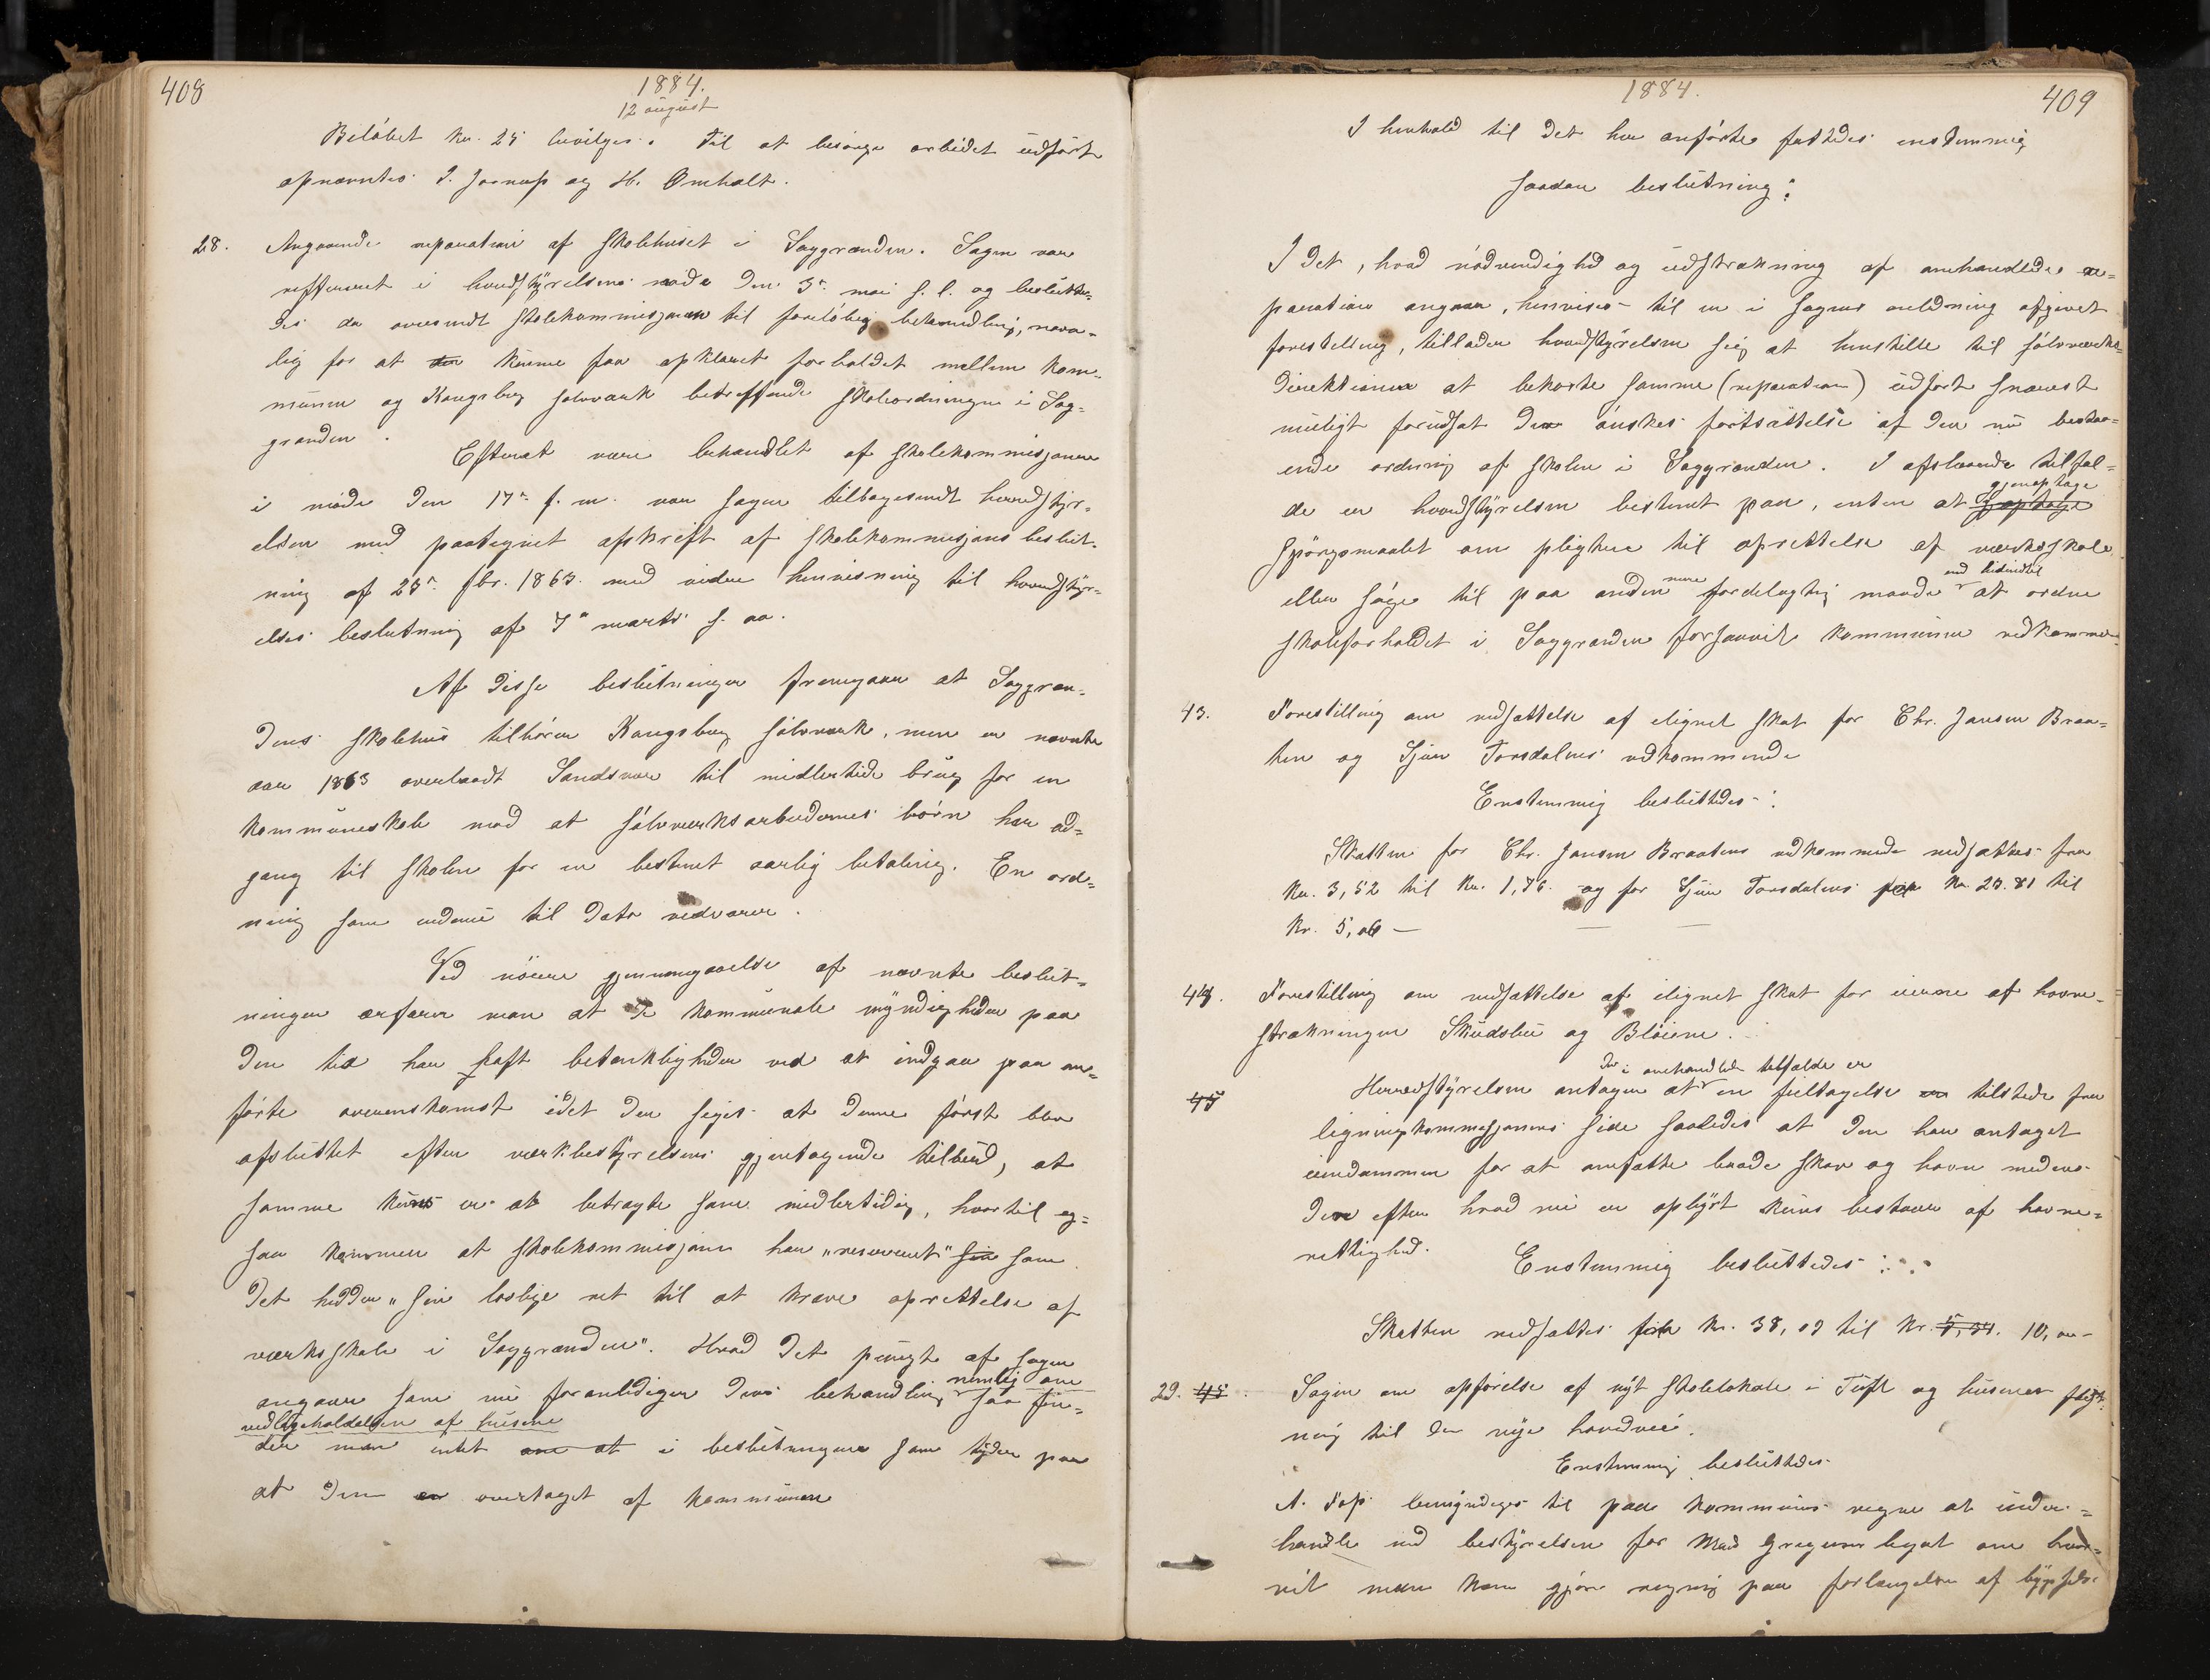 408
1884.
12 august
Beløbet Kr. 25 bevilges. Til at besørge arbeidet udført
opnævntes I. Jornaſs og H. Omholt.
28. Angaaende reparation af skolehuset i Saggrænden. Sagen var
refereret i herredsstyrelsens møde den 3die mai s. l. og beslutte-
des da oversendt skolekommisjonen til foreløbig behandling, navn-
lig for at kunne faa opklaret forholdet mellem kom-
munen og Kongsberg sølvværk betræffende skoleordningen i Sag-
grænden.
Efterat være behandlet af skolekommisjonen
i møde den 17de f. m. var sagen tilbagesendt herredsstyr-
elsen med paategnet afskrift af skolekommisjons beslut-
ning af 23de fbr. 1863 med videre henvisning til herredsstyr-
elses beslutning af 7de marts s. aa.
Af disse beslutninger fremgaar at Saggræn-
dens skolehus tilhører Kongsberg sølvværk, men er nævnte
aar 1863 overladt Sandsvær til midlertidig brug for en
kommuneskole mod at sølvværksarbeidernes børn har ad-
gang til skolen for en bestemt aarlig betaling. En ord-
ning som endnu til dato vedvarer.
Ved nøiere gjennemgaaelse af nævnte beslut-
ninger erfarer man at de kommunale myndigheder paa
den tid har haft betænkligheder ved at indgaa paa an-
førte overenskomst idet den siges at denne først blev
afsluttet efter værkbestyrelsens gjentagende tilbud, at
samme kuns er at betragte som midlertidig, hvortil og-
saa kommer at skolekommisjonen har "reserveret" sin som
det hedder "sin lovlige ret til at kræve oprettelse af
værksskole i Saggrænden". Hvad det punkt af sagen
angaar som nu foranlediger dens behandling nemlig om
vedligeholdelsen af husene saa fin-
der man intet om at i beslutningerne som tyder paa
at den er overtaget af kommunen
1884.
409
I henhold til det her anførte fattedes enstemmig
saadan beslutning:
I det, hvad nødvendighed og udstrækning af omhandlede re-
paration angaar, henvises til en i sagens anledning afgivet
forestilling, tillader herredsstyrelsen sig at henstille til sølvværks-
direktionen at bekoste samme (reparation) udført snarest
muligt forudsat der ønskes fortsættelse af den nu bestaa-
ende ordning af skolen i Saggrænden. I afslaaende tilfæl-
de er herredsstyrelsen bestemt paa, enten at gjenoptage
spørgsmaalet om pligten til oprettelse af værksskole
eller søge til paa anden mere fordelagtig maade end hidindtil at ordne
skoleforholdet i Saggrænden forsaavidt kommunen vedkommer
43. Forestilling om nedsættelse af elignet skat for Chr. Jansen Braa-
ten og Sjur Torsdalens vedkommende
Enstemmig besluttedes:
Skatten for Chr. Jansen Braatens vedkommende nedsættes fra
Kr. 3,52 til Kr. 1,76. og for Sjur Torsdalens fra Kr. 23.81 til
Kr. 5,06 —
44. Forestilling om nedsættelse af ilignet skat for eierne af havne-
strækningen Skudsbu og Bløiene.
45 Herredsstyrelsen antager at der i omhandlede tilfælde er en feiltagelse er tilstede fra
ligningskommisjonens side saaledes at den har antaget
eiendommen for at omfatte baade skov og havn medens
den efter hvad nu er oplyst kuns bestaar af havne-
rettighed.
Enstemmig besluttedes:
Skatten nedsættes fra Kr. 38,09 til Kr. 5,34. 10,oo-
29. 45. Sagen om opførelse af nyt skolelokale i Tuft og husenes flyt-
ning til den nye hovedvei.
Enstemmig besluttedes
A. Foſs bemyndiges til paa kommunens vegne at under-
handle med bestyrelsen for Mad Gregersens legat om hvor-
vidt man kan gjøre regning paa forlængelse af bygsels-